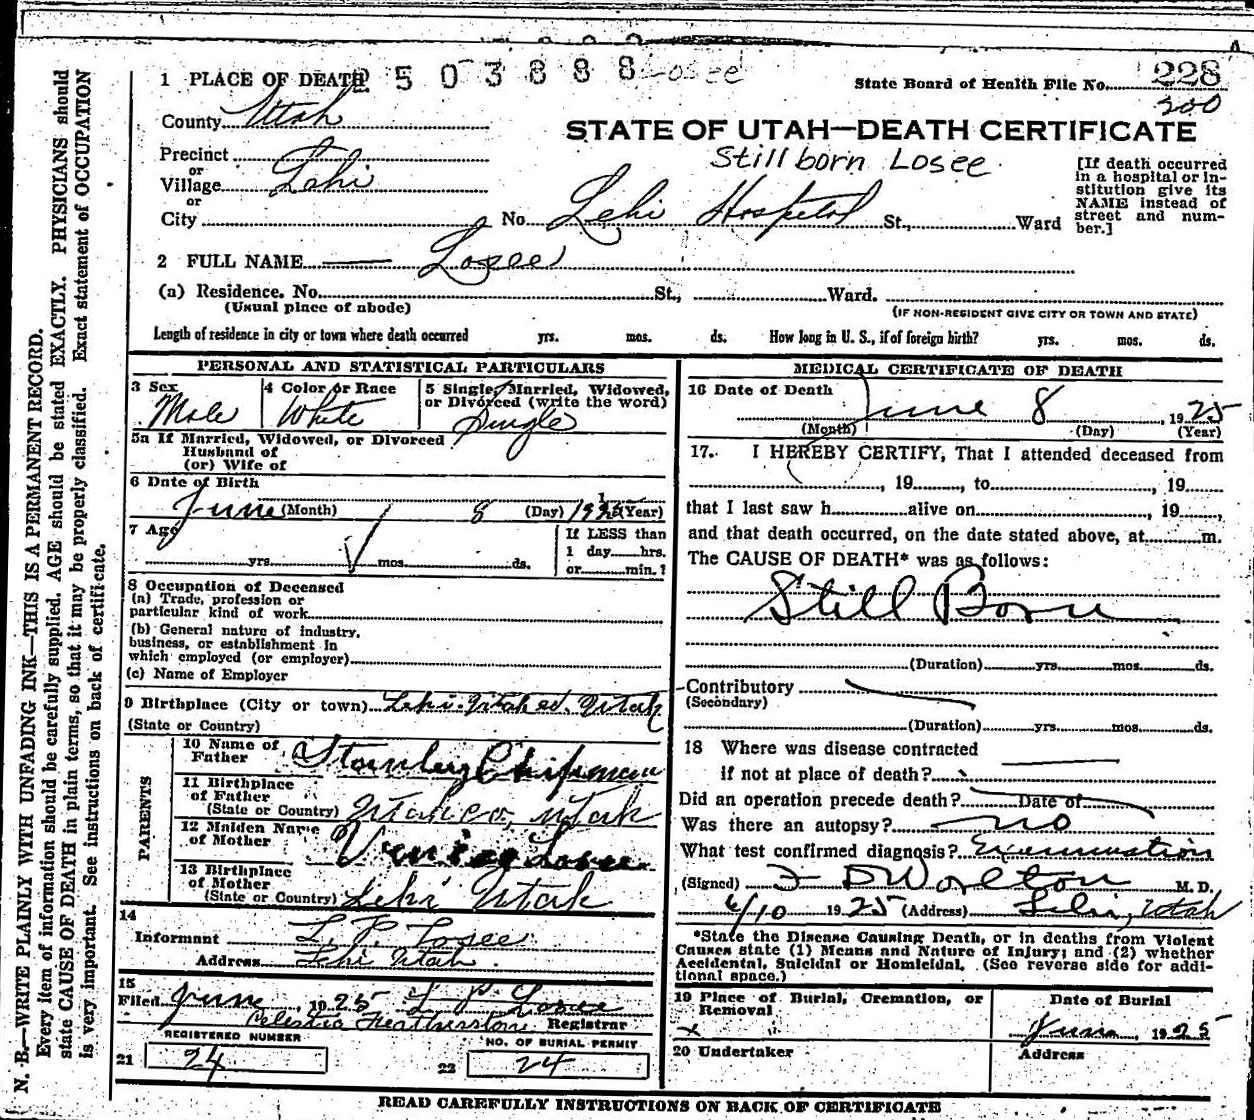 1 PLACE OF DEATH 2503888 Losee State Board of Health File No. 228
200
County Utah
STATE OF UTAH—DEATH CERTIFICATE
Stillborn Losee
Precinct
or
Village Lehi
or
City No. Lehi Hospital St., Ward
[If death occurred
in a hospital or in-
stitution give its
NAME instead of
street and num-
ber.]
2 FULL NAME Losee
(a) Residence. No. St., Ward.
(Usual place of abode) (IF NON-RESIDENT GIVE CITY OR TOWN AND STATE)
Length of residence in city or town where death occurred yrs. mos. ds. How long in U. S., if of foreign birth? yrs. mos. ds.
PERSONAL AND STATISTICAL PARTICULARS
3 Sex
Male
4 Color or Race
White
5 Single, Married, Widowed,
or Divorced (write the word)
Single
5a If Married, Widowed, or Divorced
Husband of
(or) Wife of
6 Date of Birth
June (Month) 8 (Day) 1925 (Year)
7 Age
yrs. mos. ds.
If LESS than
1 day hrs.
or min.?
8 Occupation of Deceased
(a) Trade, profession or
particular kind of work
(b) General nature of industry,
business, or establishment in
which employed (or employer)
(c) Name of Employer
9 Birthplace (City or town) Lehi Utah co. Utah
(State or Country)
PARENTS
10 Name of
Father Stanley Chipman
11 Birthplace
of Father
(State or Country) Utah co, Utah
12 Maiden Name
of Mother Losee
13 Birthplace
of Mother
(State or Country) Lehi Utah
14
Informant L. P. Losee
Address Lehi Utah
15
Filed June 1925 L P Losee
Celestia Featherstone Registrar
REGISTERED NUMBER NO. OF BURIAL PERMIT
21 24 22 24
MEDICAL CERTIFICATE OF DEATH
16 Date of Death
June 8, 1925
(Month) (Day) (Year)
17. I HEREBY CERTIFY, That I attended deceased from
, 19 , to , 19
that I last saw h alive on , 19 ,
and that death occurred, on the date stated above, at m.
The CAUSE OF DEATH* was as follows:
Still Born
(Duration) yrs. mos. ds.
Contributory
(Secondary)
(Duration) yrs. mos. ds.
18 Where was disease contracted
if not at place of death?
Did an operation precede death? Date of
Was there an autopsy? no
What test confirmed diagnosis? Examination
(Signed) F D Worlton M. D.
6/10 1925 (Address) Lehi, Utah
*State the Disease Causing Death, or in deaths from Violent
Causes state (1) Means and Nature of Injury; and (2) whether
Accidental, Suicidal or Homicidal. (See reverse side for addi-
tional space.)
19 Place of Burial, Cremation, or
Removal
x
Date of Burial
June, 1925
20 Undertaker Address
READ CAREFULLY INSTRUCTIONS ON BACK OF CERTIFICATE
N. B.—WRITE PLAINLY WITH UNFADING INK—THIS IS A PERMANENT RECORD.
Every item of information should be carefully supplied. AGE should be stated EXACTLY. PHYSICIANS should
state CAUSE OF DEATH in plain terms, so that it may be properly classified. Exact statement of OCCUPATION
is very important. See instructions on back of certificate.